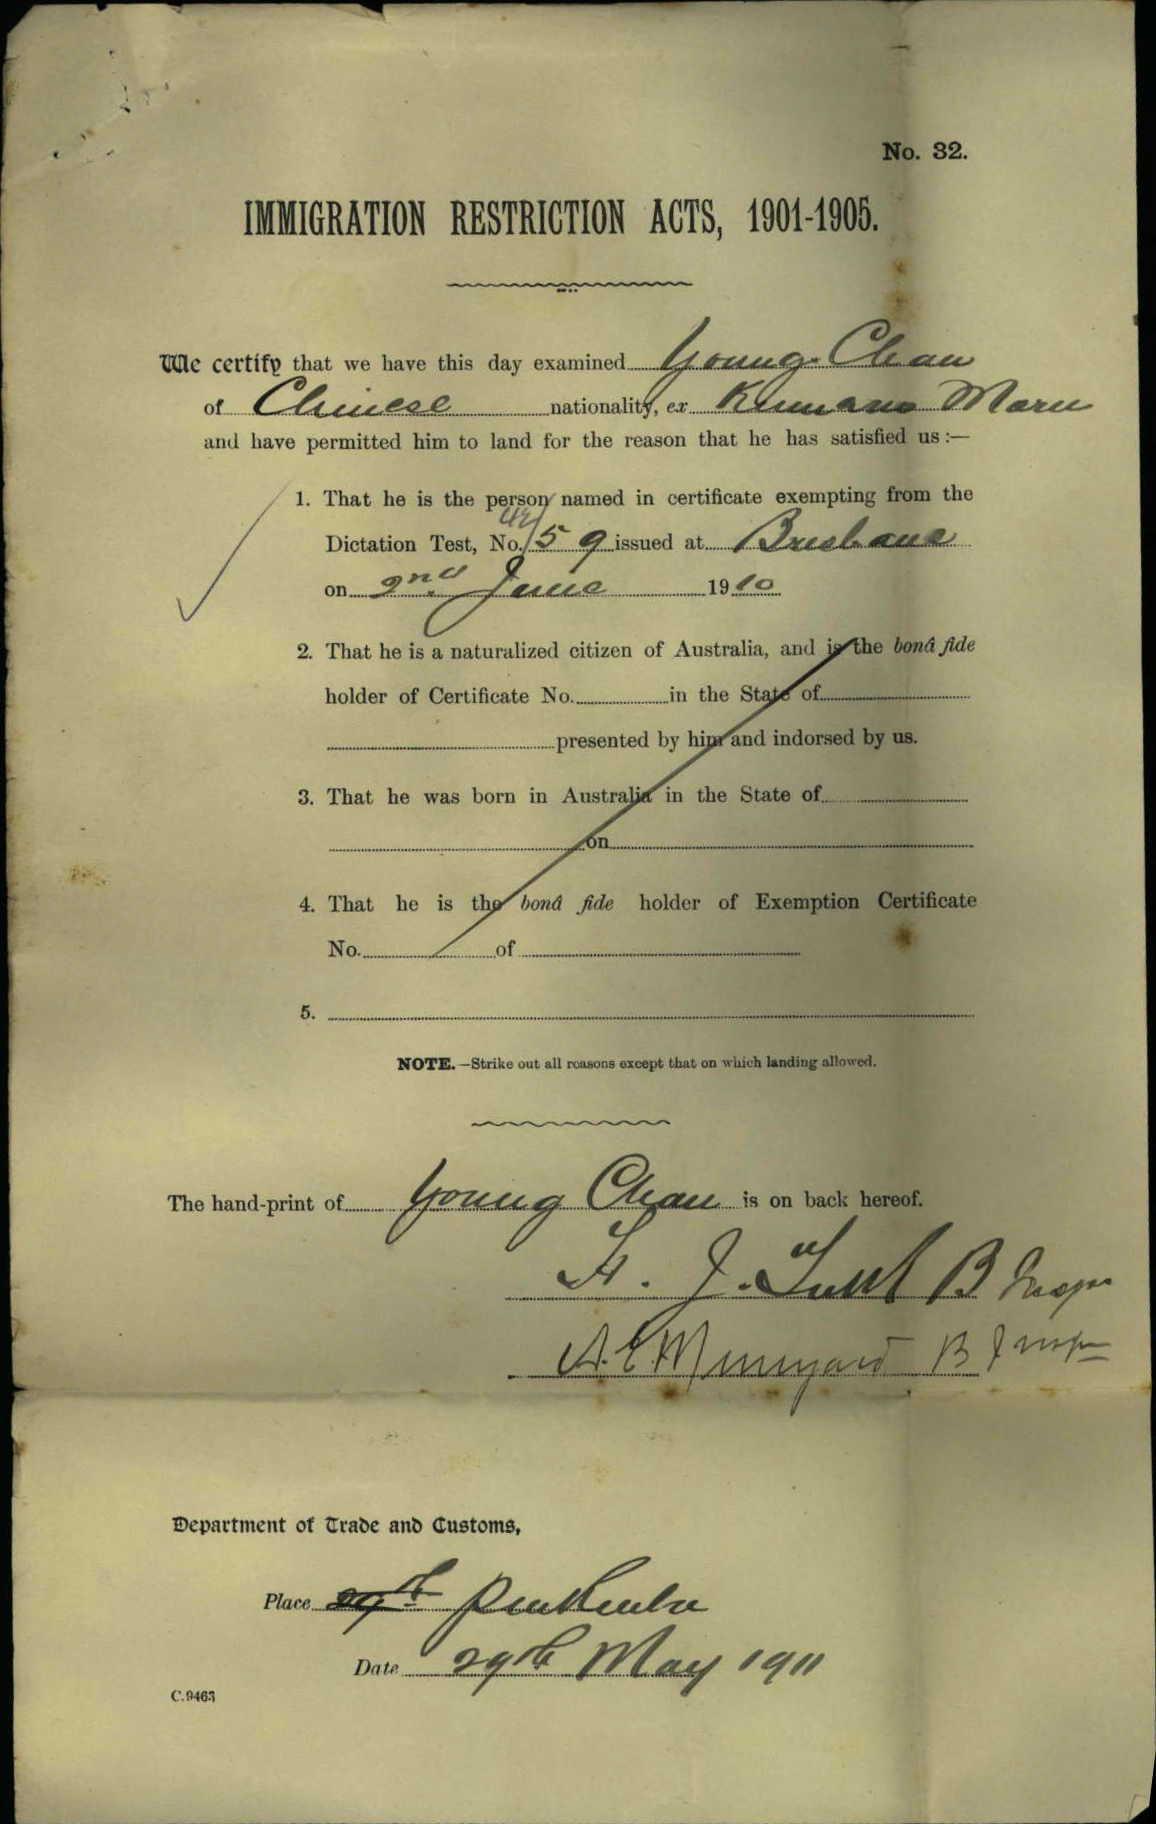 No. 32.
IMMIGRATION RESTRICTION ACTS, 1901-1905.
We certify that we have this day examined Young Chau
of Chinese nationality, ex Kumano Maru
and have permitted him to land for the reason that he has satisfied us :—
1. That he is the person named in certificate exempting from the
Dictation Test, No. 59 issued at Brisbane
on 2nd June 1910
2. That he is a naturalized citizen of Australia, and is the bonâ fide
holder of Certificate No. in the State of
presented by him and indorsed by us.
3. That he was born in Australia in the State of
on
4. That he is the bonâ fide holder of Exemption Certificate
No. of
5.
NOTE.—Strike out all reasons except that on which landing allowed.
The hand-print of Young Chau is on back hereof.
J. B Inspr
A. E. B Inspr
Department of Trade and Customs,
Place 29th Pinkenba
Date 29th May 1911
C.9463